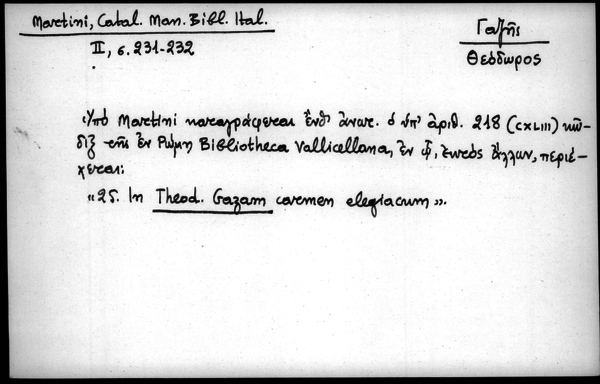 Martini, Catal. Man. Bibl. Ital.
II, σ. 231-232
Γαζῆς
Θεόδωρος
Ὑπὸ Martini καταγράφεται ἔνθ' ἀνωτ. ὁ ὑπ' ἀριθ. 218 (CXLIII) κῶ-
διξ τῆς ἐν Ρώμῃ Bibliotheca Vallicellana, ἐν ᾧ, ἐκτὸς ἄλλων, περιέ-
χεται:
«25. In Theod. Gazam carmen elegiacum».